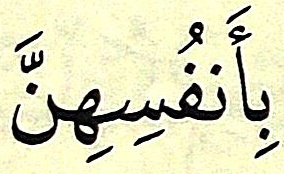 بِأَنفُسِهِنَّ